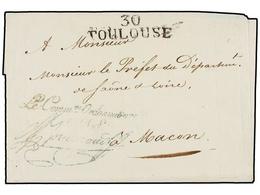 30
TOULOUSE
A Monsieur
Monsieur le Préfet du Départem.t
de Saône & Loire,
Le Comm.re Ordonnateur
à Macon